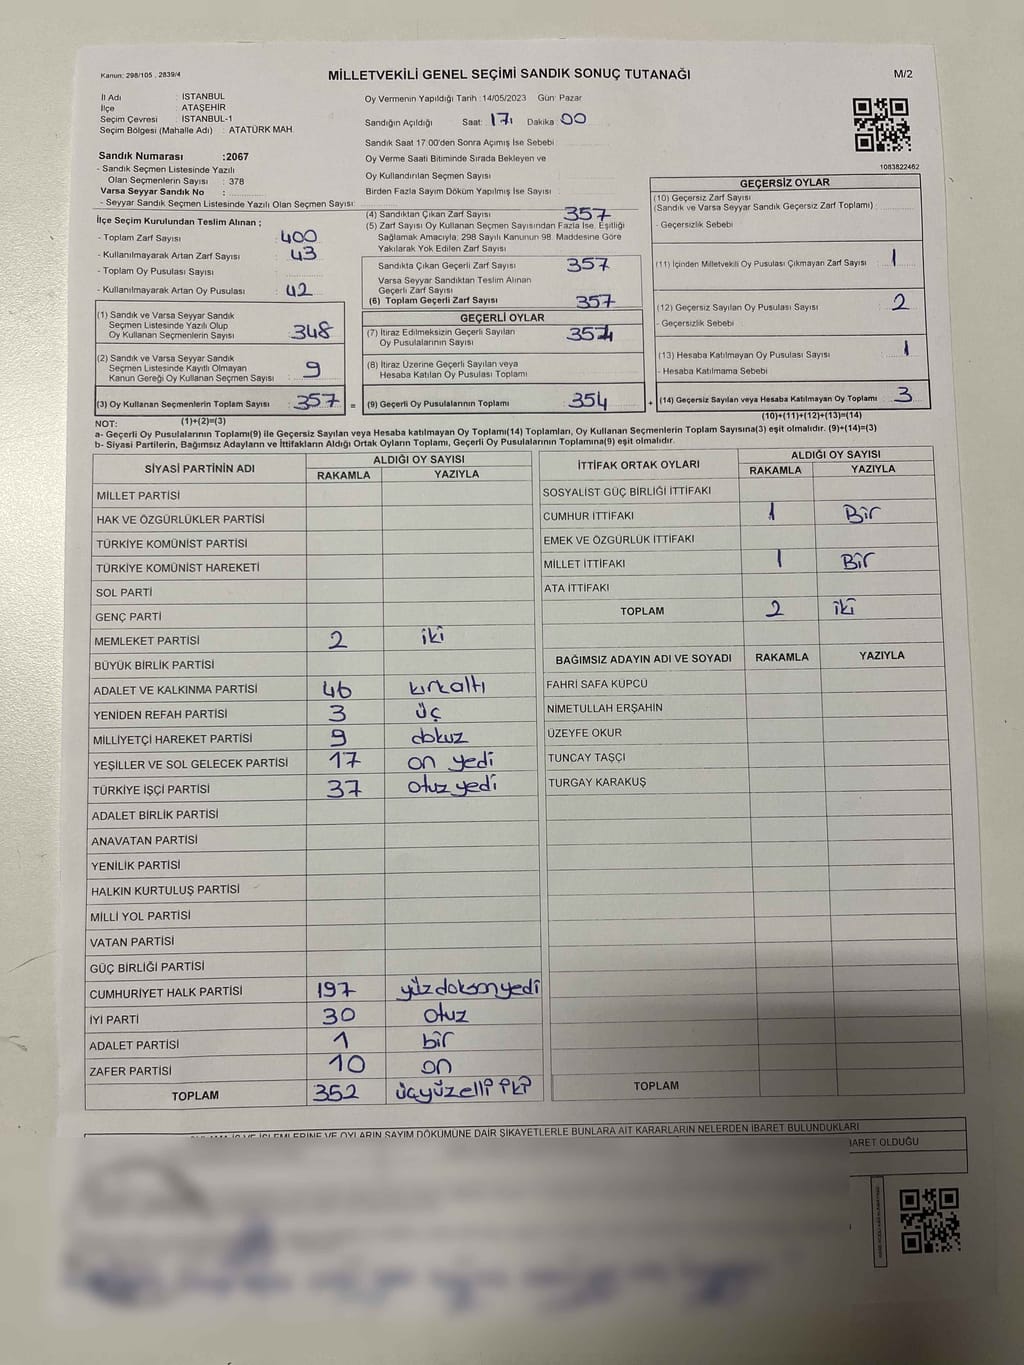 Kanun: 298/105 , 2839/4
MİLLETVEKİLİ GENEL SEÇİMİ SANDIK SONUÇ TUTANAĞI
M/2
İl Adı : İSTANBUL
İlçe : ATAŞEHİR
Seçim Çevresi : İSTANBUL-1
Seçim Bölgesi (Mahalle Adı) : ATATÜRK MAH.
Oy Vermenin Yapıldığı Tarih :14/05/2023 Gün: Pazar
Sandığın Açıldığı Saat: 17 Dakika 00
Sandık Saat 17:00'den Sonra Açımış İse Sebebi
Oy Verme Saati Bitiminde Sırada Bekleyen ve
Oy Kullandırılan Seçmen Sayısı
Birden Fazla Sayım Döküm Yapılmış İse Sayısı :
1083822462
Sandık Numarası :2067
- Sandık Seçmen Listesinde Yazılı
Olan Seçmenlerin Sayısı : 378
Varsa Seyyar Sandık No :
- Seyyar Sandık Seçmen Listesinde Yazılı Olan Seçmen Sayısı:
İlçe Seçim Kurulundan Teslim Alınan ;
- Toplam Zarf Sayısı : 400
- Kullanılmayarak Artan Zarf Sayısı : 43
- Toplam Oy Pusulası Sayısı :
- Kullanılmayarak Artan Oy Pusulası : 42
(1) Sandık ve Varsa Seyyar Sandık
Seçmen Listesinde Yazılı Olup
Oy Kullanan Seçmenlerin Sayısı : 348
(2) Sandık ve Varsa Seyyar Sandık
Seçmen Listesinde Kayıtlı Olmayan
Kanun Gereği Oy Kullanan Seçmen Sayısı : 9
(3) Oy Kullanan Seçmenlerin Toplam Sayısı : 357
(4) Sandıktan Çıkan Zarf Sayısı 357
(5) Zarf Sayısı Oy Kullanan Seçmen Sayısından Fazla İse, Eşitliği
Sağlamak Amacıyla; 298 Sayılı Kanunun 98. Maddesine Göre
Yakılarak Yok Edilen Zarf Sayısı
Sandıkta Çıkan Geçerli Zarf Sayısı 357
Varsa Seyyar Sandıktan Teslim Alınan
Geçerli Zarf Sayısı
(6) Toplam Geçerli Zarf Sayısı 357
GEÇERLİ OYLAR
(7) İtiraz Edilmeksizin Geçerli Sayılan
Oy Pusulalarının Sayısı : 354
(8) İtiraz Üzerine Geçerli Sayılan veya
Hesaba Katılan Oy Pusulası Toplamı
= (9) Geçerli Oy Pusulalarının Toplamı : 354
GEÇERSİZ OYLAR
(10) Geçersiz Zarf Sayısı
(Sandık ve Varsa Seyyar Sandık Geçersiz Zarf Toplamı) :
- Geçersizlik Sebebi
(11) İçinden Milletvekili Oy Pusulası Çıkmayan Zarf Sayısı : 1
(12) Geçersiz Sayılan Oy Pusulası Sayısı : 2
- Geçersizlik Sebebi
(13) Hesaba Katılmayan Oy Pusulası Sayısı : 1
- Hesaba Katılmama Sebebi
+ (14) Geçersiz Sayılan veya Hesaba Katılmayan Oy Toplamı : 3
NOT: (1)+(2)=(3)
(10)+(11)+(12)+(13)=(14)
a- Geçerli Oy Pusulalarının Toplamı(9) ile Geçersiz Sayılan veya Hesaba katılmayan Oy Toplamı(14) Toplamları, Oy Kullanan Seçmenlerin Toplam Sayısına(3) eşit olmalıdır. (9)+(14)=(3)
b- Siyasi Partilerin, Bağımsız Adayların ve İttifakların Aldığı Ortak Oyların Toplamı, Geçerli Oy Pusulalarının Toplamına(9) eşit olmalıdır.
SİYASİ PARTİNİN ADI ALDIĞI OY SAYISI
RAKAMLA YAZIYLA
MİLLET PARTİSİ
HAK VE ÖZGÜRLÜKLER PARTİSİ
TÜRKİYE KOMÜNİST PARTİSİ
TÜRKİYE KOMÜNİST HAREKETİ
SOL PARTİ
GENÇ PARTİ
MEMLEKET PARTİSİ 2 iki
BÜYÜK BİRLİK PARTİSİ
ADALET VE KALKINMA PARTİSİ 46 kırkaltı
YENİDEN REFAH PARTİSİ 3 üç
MİLLİYETÇİ HAREKET PARTİSİ 9 dokuz
YEŞİLLER VE SOL GELECEK PARTİSİ 17 on yedi
TÜRKİYE İŞÇİ PARTİSİ 37 otuz yedi
ADALET BİRLİK PARTİSİ
ANAVATAN PARTİSİ
YENİLİK PARTİSİ
HALKIN KURTULUŞ PARTİSİ
MİLLİ YOL PARTİSİ
VATAN PARTİSİ
GÜÇ BİRLİĞİ PARTİSİ
CUMHURİYET HALK PARTİSİ 197 yüzdoksanyedi
İYİ PARTİ 30 otuz
ADALET PARTİSİ 1 bir
ZAFER PARTİSİ 10 on
TOPLAM 352 üçyüzelli iki
İTTİFAK ORTAK OYLARI ALDIĞI OY SAYISI
RAKAMLA YAZIYLA
SOSYALİST GÜÇ BİRLİĞİ İTTİFAKI
CUMHUR İTTİFAKI 1 Bir
EMEK VE ÖZGÜRLÜK İTTİFAKI
MİLLET İTTİFAKI 1 Bir
ATA İTTİFAKI
TOPLAM 2 iki
BAĞIMSIZ ADAYIN ADI VE SOYADI RAKAMLA YAZIYLA
FAHRİ SAFA KÜPCÜ
NİMETULLAH ERŞAHİN
ÜZEYFE OKUR
TUNCAY TAŞÇI
TURGAY KARAKUŞ
TOPLAM
İŞLEMLERİNE VE OYLARIN SAYIM DÖKÜMÜNE DAİR ŞİKAYETLERLE BUNLARA AİT KARARLARIN NELERDEN İBARET BULUNDUKLARI
OLDUĞU